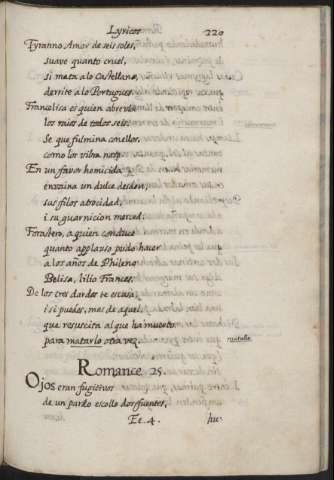 Lyricos 220
Tyranno Amor de seis soles,
suave quanto cruel,
si mata a lo Castellano,
derrite a lo Portugues.
Francelisa es quien abrevia
los raios de todos seis:
Se que fulmina con ellos,
como los vibra no se.
En un favor homicida
envaina un dulce desden,
sus filos atrocidad,
i su guarnicion merced.
Forastero, a quien conduce
quanto applauso pudo hacer
a los años de Phileno
Belisa, lilio Frances.
De los tres dardos te escusa
i si puedes, mas de aquel
que resuscita al que ha muerto
para matarlo otra vez.
Romance 25.
Ojos eran fugitivos
de un pardo escollo dos fuentes,
Ee. 4. hu-